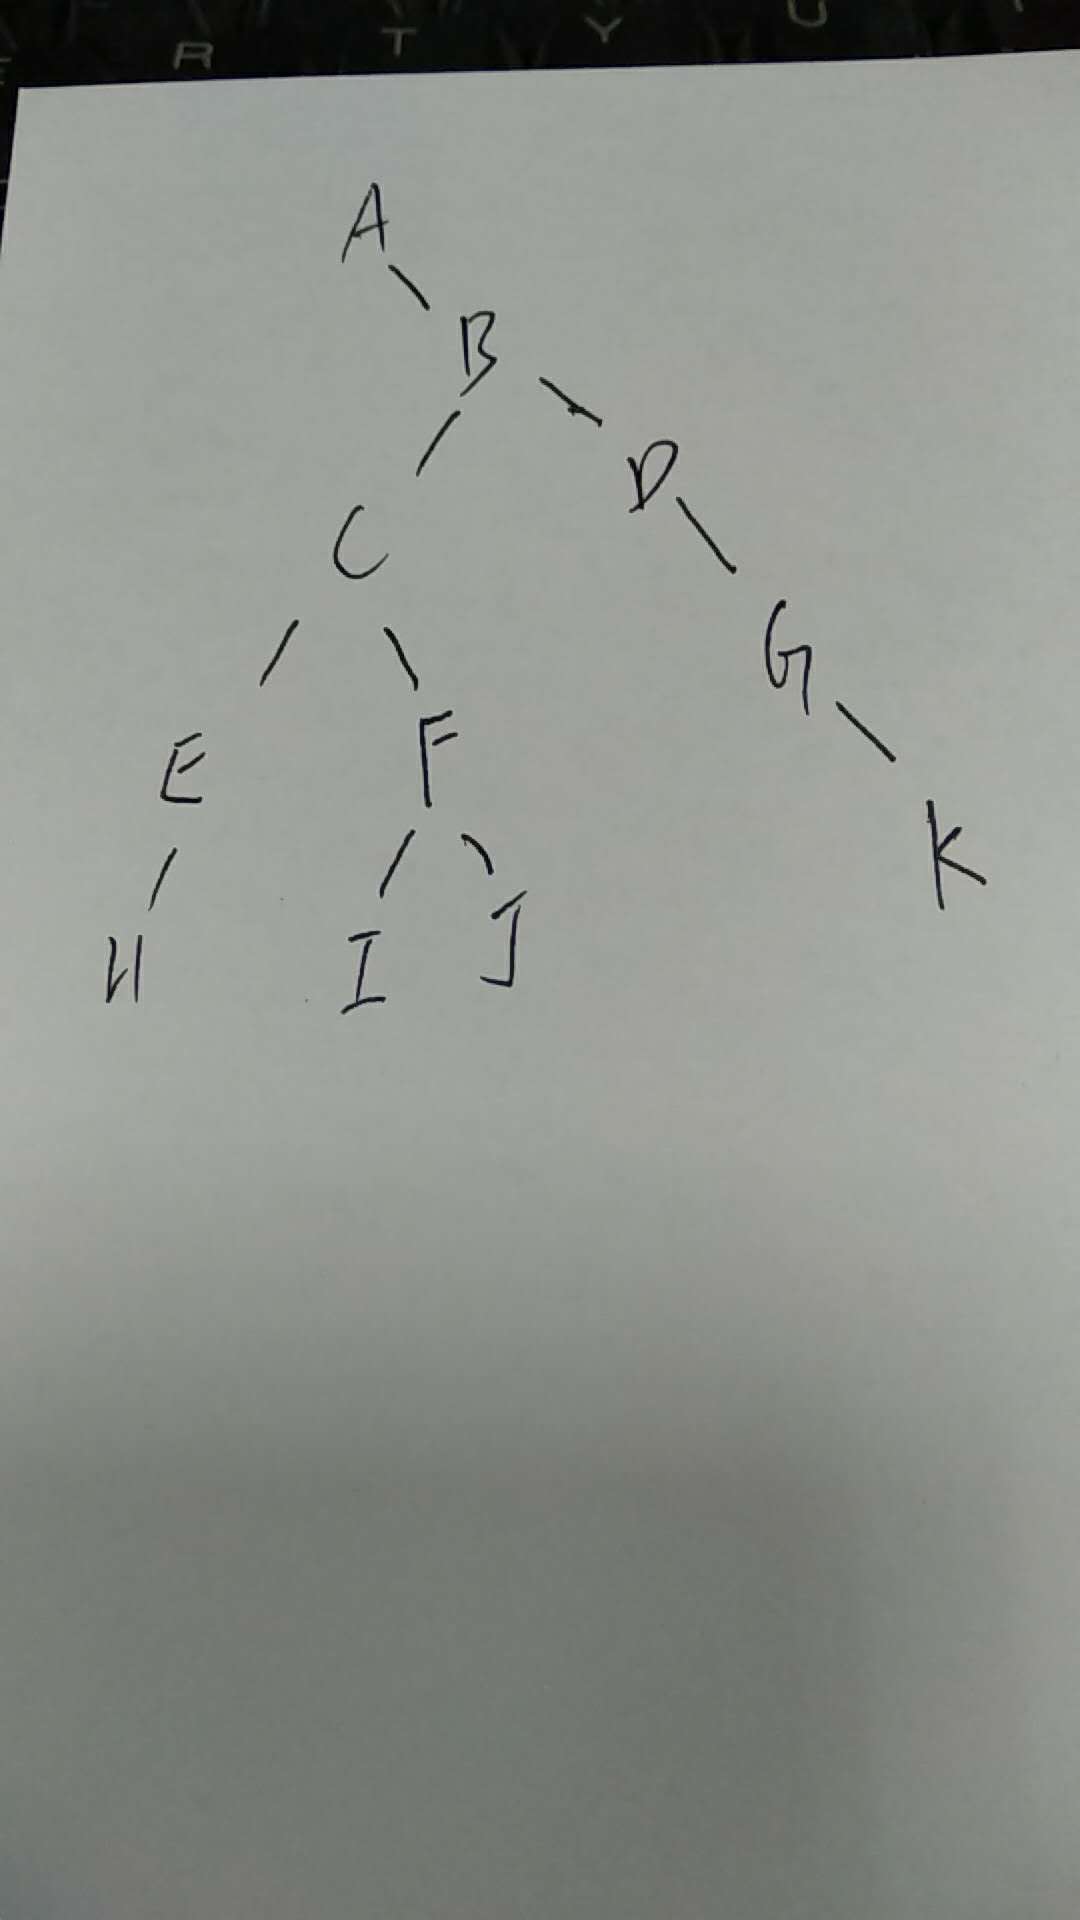 R T Y U
A
B
C D
E F G
H I J K